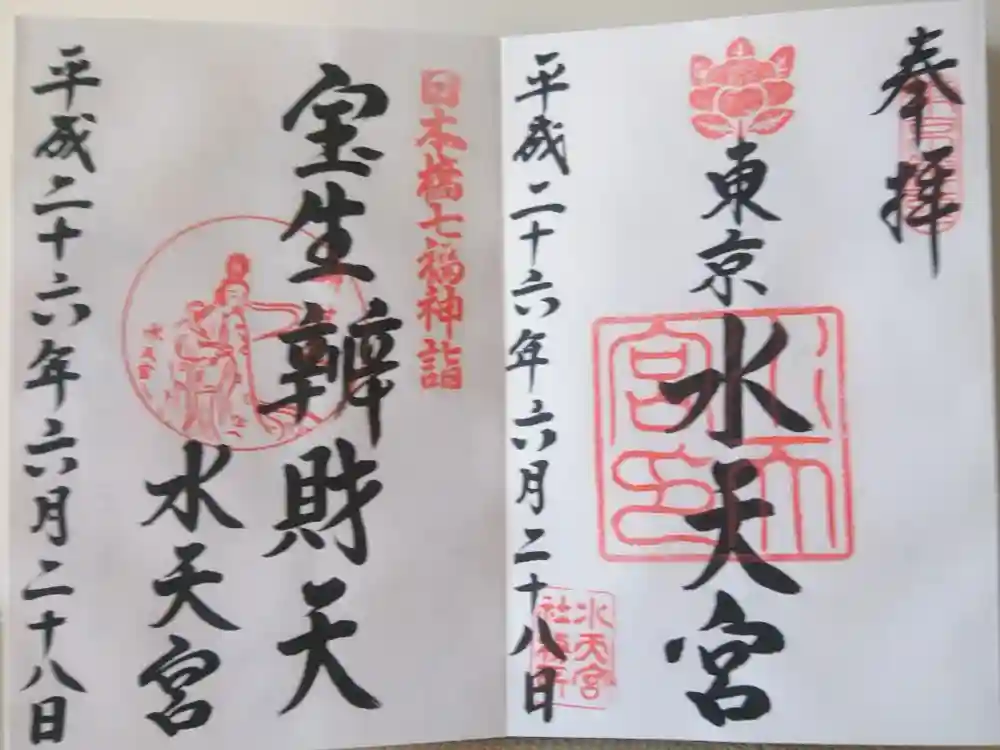 奉拝
東京水天宮
水天宮印
平成二十六年六月二十八日
水天宮
日本橋七福神詣
宝生辨財天
水天宮
平成二十六年六月二十八日